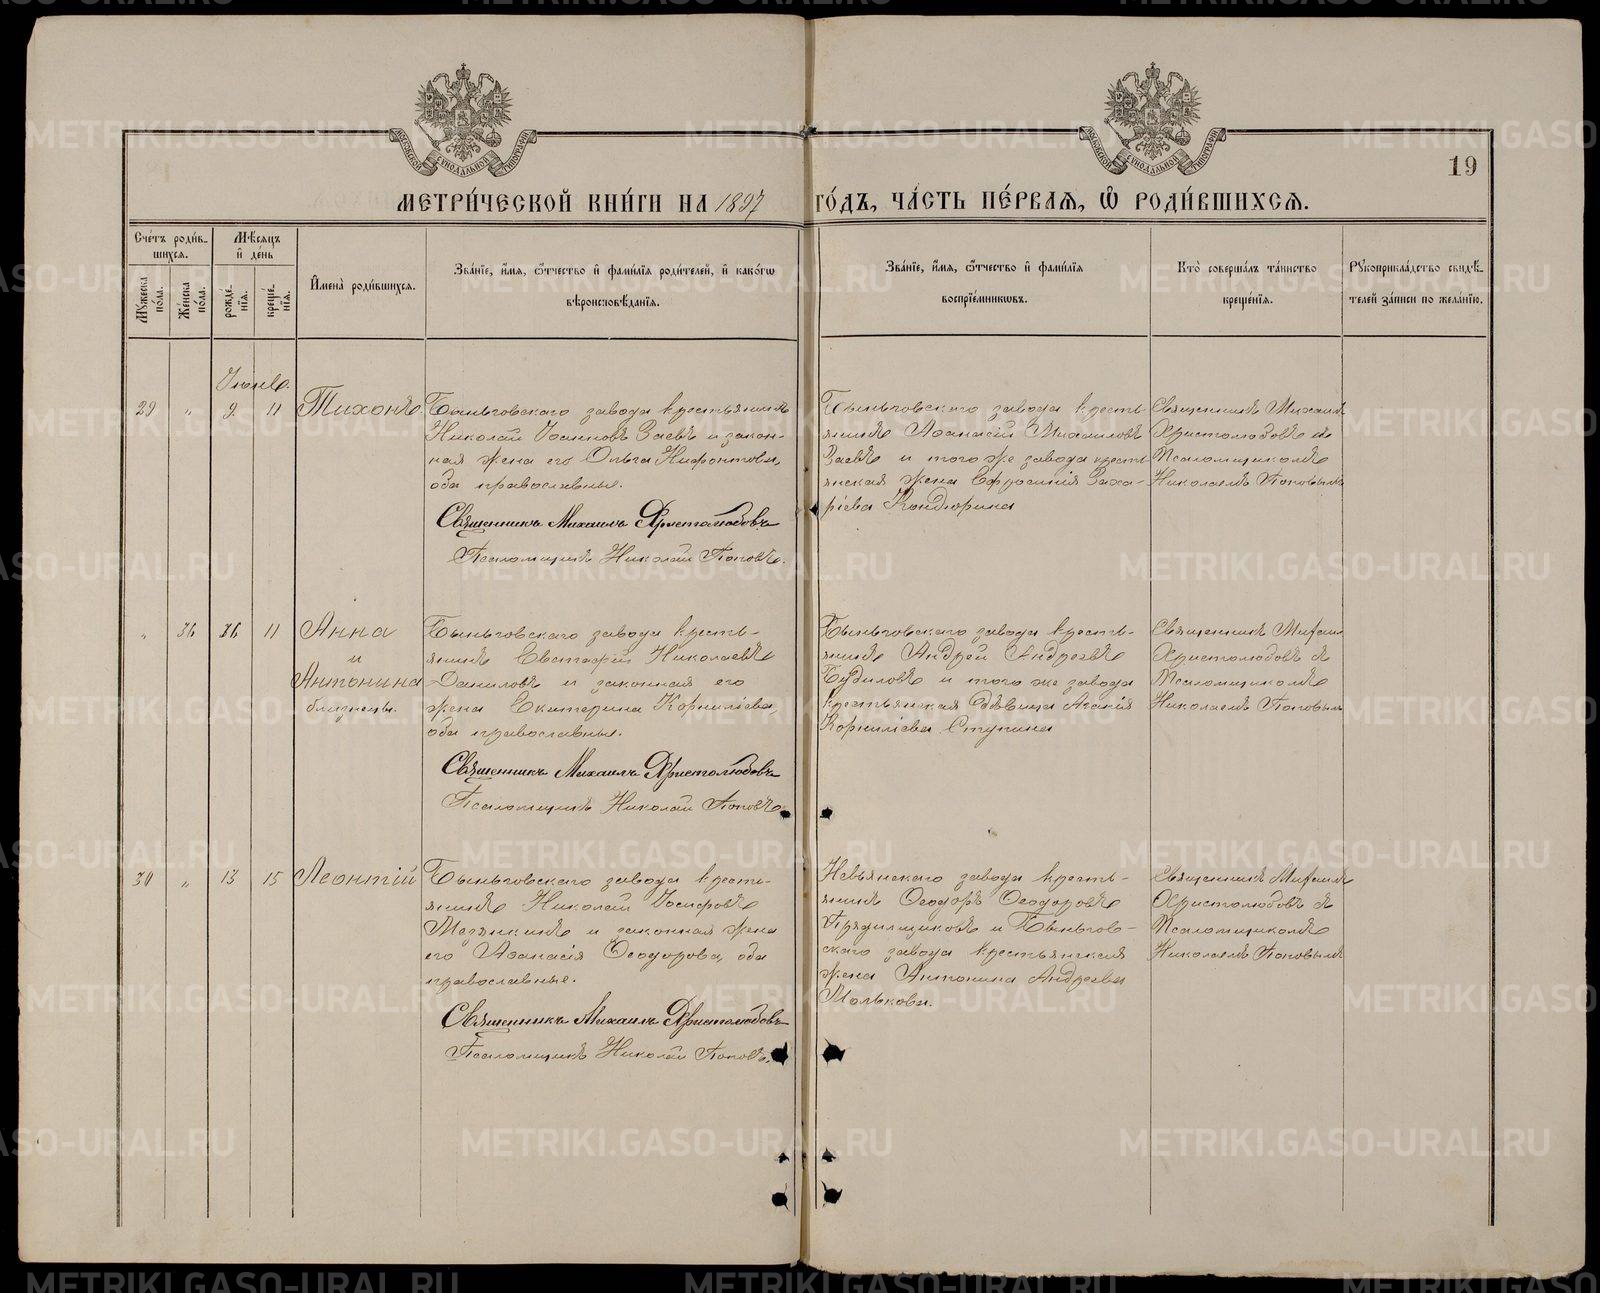 19
МЕТРИ́ЧЕСКОЙ КНИ́ГИ НА 1897 ГО́ДЪ, ЧА́СТЬ ПЕ́РВАЯ, Ѡ РОДИ́ВШИХСѦ.
Сче́тъ роди́в-
шихся.
Мѣ́сяцъ
и҆ де́нь
Мꙋ́жеска по́ла.
Же́нска по́ла.
рожде́-
нїѧ.
креще́-
нїѧ.
И҆мена̀ роди́вшихсѧ.
Зва́нїе, и҆́мѧ, ѻ҆́тчество и҆ фами́лїѧ роди́телей, и҆ како́гѡ
вѣроисповѣ́данїѧ.
Зва́нїе, и҆́мѧ, ѻ҆́тчество и҆ фами́лїѧ
воспрїе́мниковъ.
Кто̀ соверша́лъ та́инство
креще́нїѧ.
Рꙋкоприкла́дство свидѣ́-
телей за́писи по жела́нїю.
Іюнь.
29 " 9 11 Тихонъ.
Быньговскаго завода крестьянинъ
Николай Іоанновъ Заевъ и закон-
ная жена его Ольга Нифонтова,
оба православные.
Священникъ Михаилъ Христолюбовъ
Псаломщикъ Николай Поповъ.
Быньговскаго завода кресть-
янинъ Аѳанасій Михаиловъ
Заевъ и того же завода кресть-
янская жена Ефросинія Заха-
ріева Кондюрина
Священникъ Михаилъ
Христолюбовъ съ
Псаломщикомъ
Николаемъ Поповымъ
" 11 Анна
и
Антонина
близнецы.
Быньговскаго завода кресть-
янинъ Евстафій Николаевъ
Даниловъ и законная его
жена Екатерина Корниліева,
оба православные.
Священникъ Михаилъ Христолюбовъ
Псаломщикъ Николай Поповъ
Быньговскаго завода кресть-
янинъ Андрей Андреевъ
и того же завода
крестьянская дѣвица
Корниліева Ступина
Священникъ Михаилъ
Христолюбовъ съ
Псаломщикомъ
Николаемъ Поповымъ
30 " 13 15 Леонтій
Быньговскаго завода кресть-
янинъ Николай Іосифовъ
Мезянкинъ и законная жена
его Аѳанасія Ѳеодорова, оба
православные.
Священникъ Михаилъ Христолюбовъ
Псаломщикъ Николай Поповъ.
Невьянскаго завода кресть-
янинъ Ѳеодоръ Ѳеодоровъ
Прядильщиковъ и Быньгов-
скаго завода крестьянская
жена Антонина Андреева
Молькова.
Священникъ Михаилъ
Христолюбовъ съ
Псаломщикомъ
Николаемъ Поповымъ
METRIKI.GASO-URAL.RU